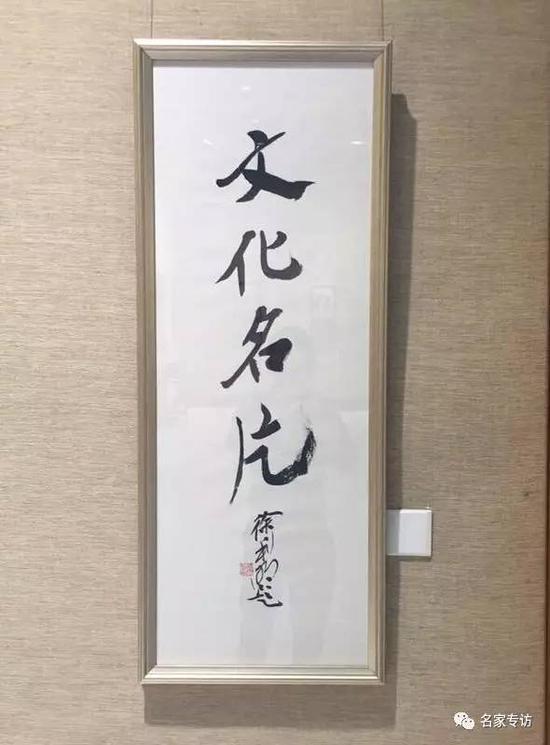 文化名片
徐
题
名家专访